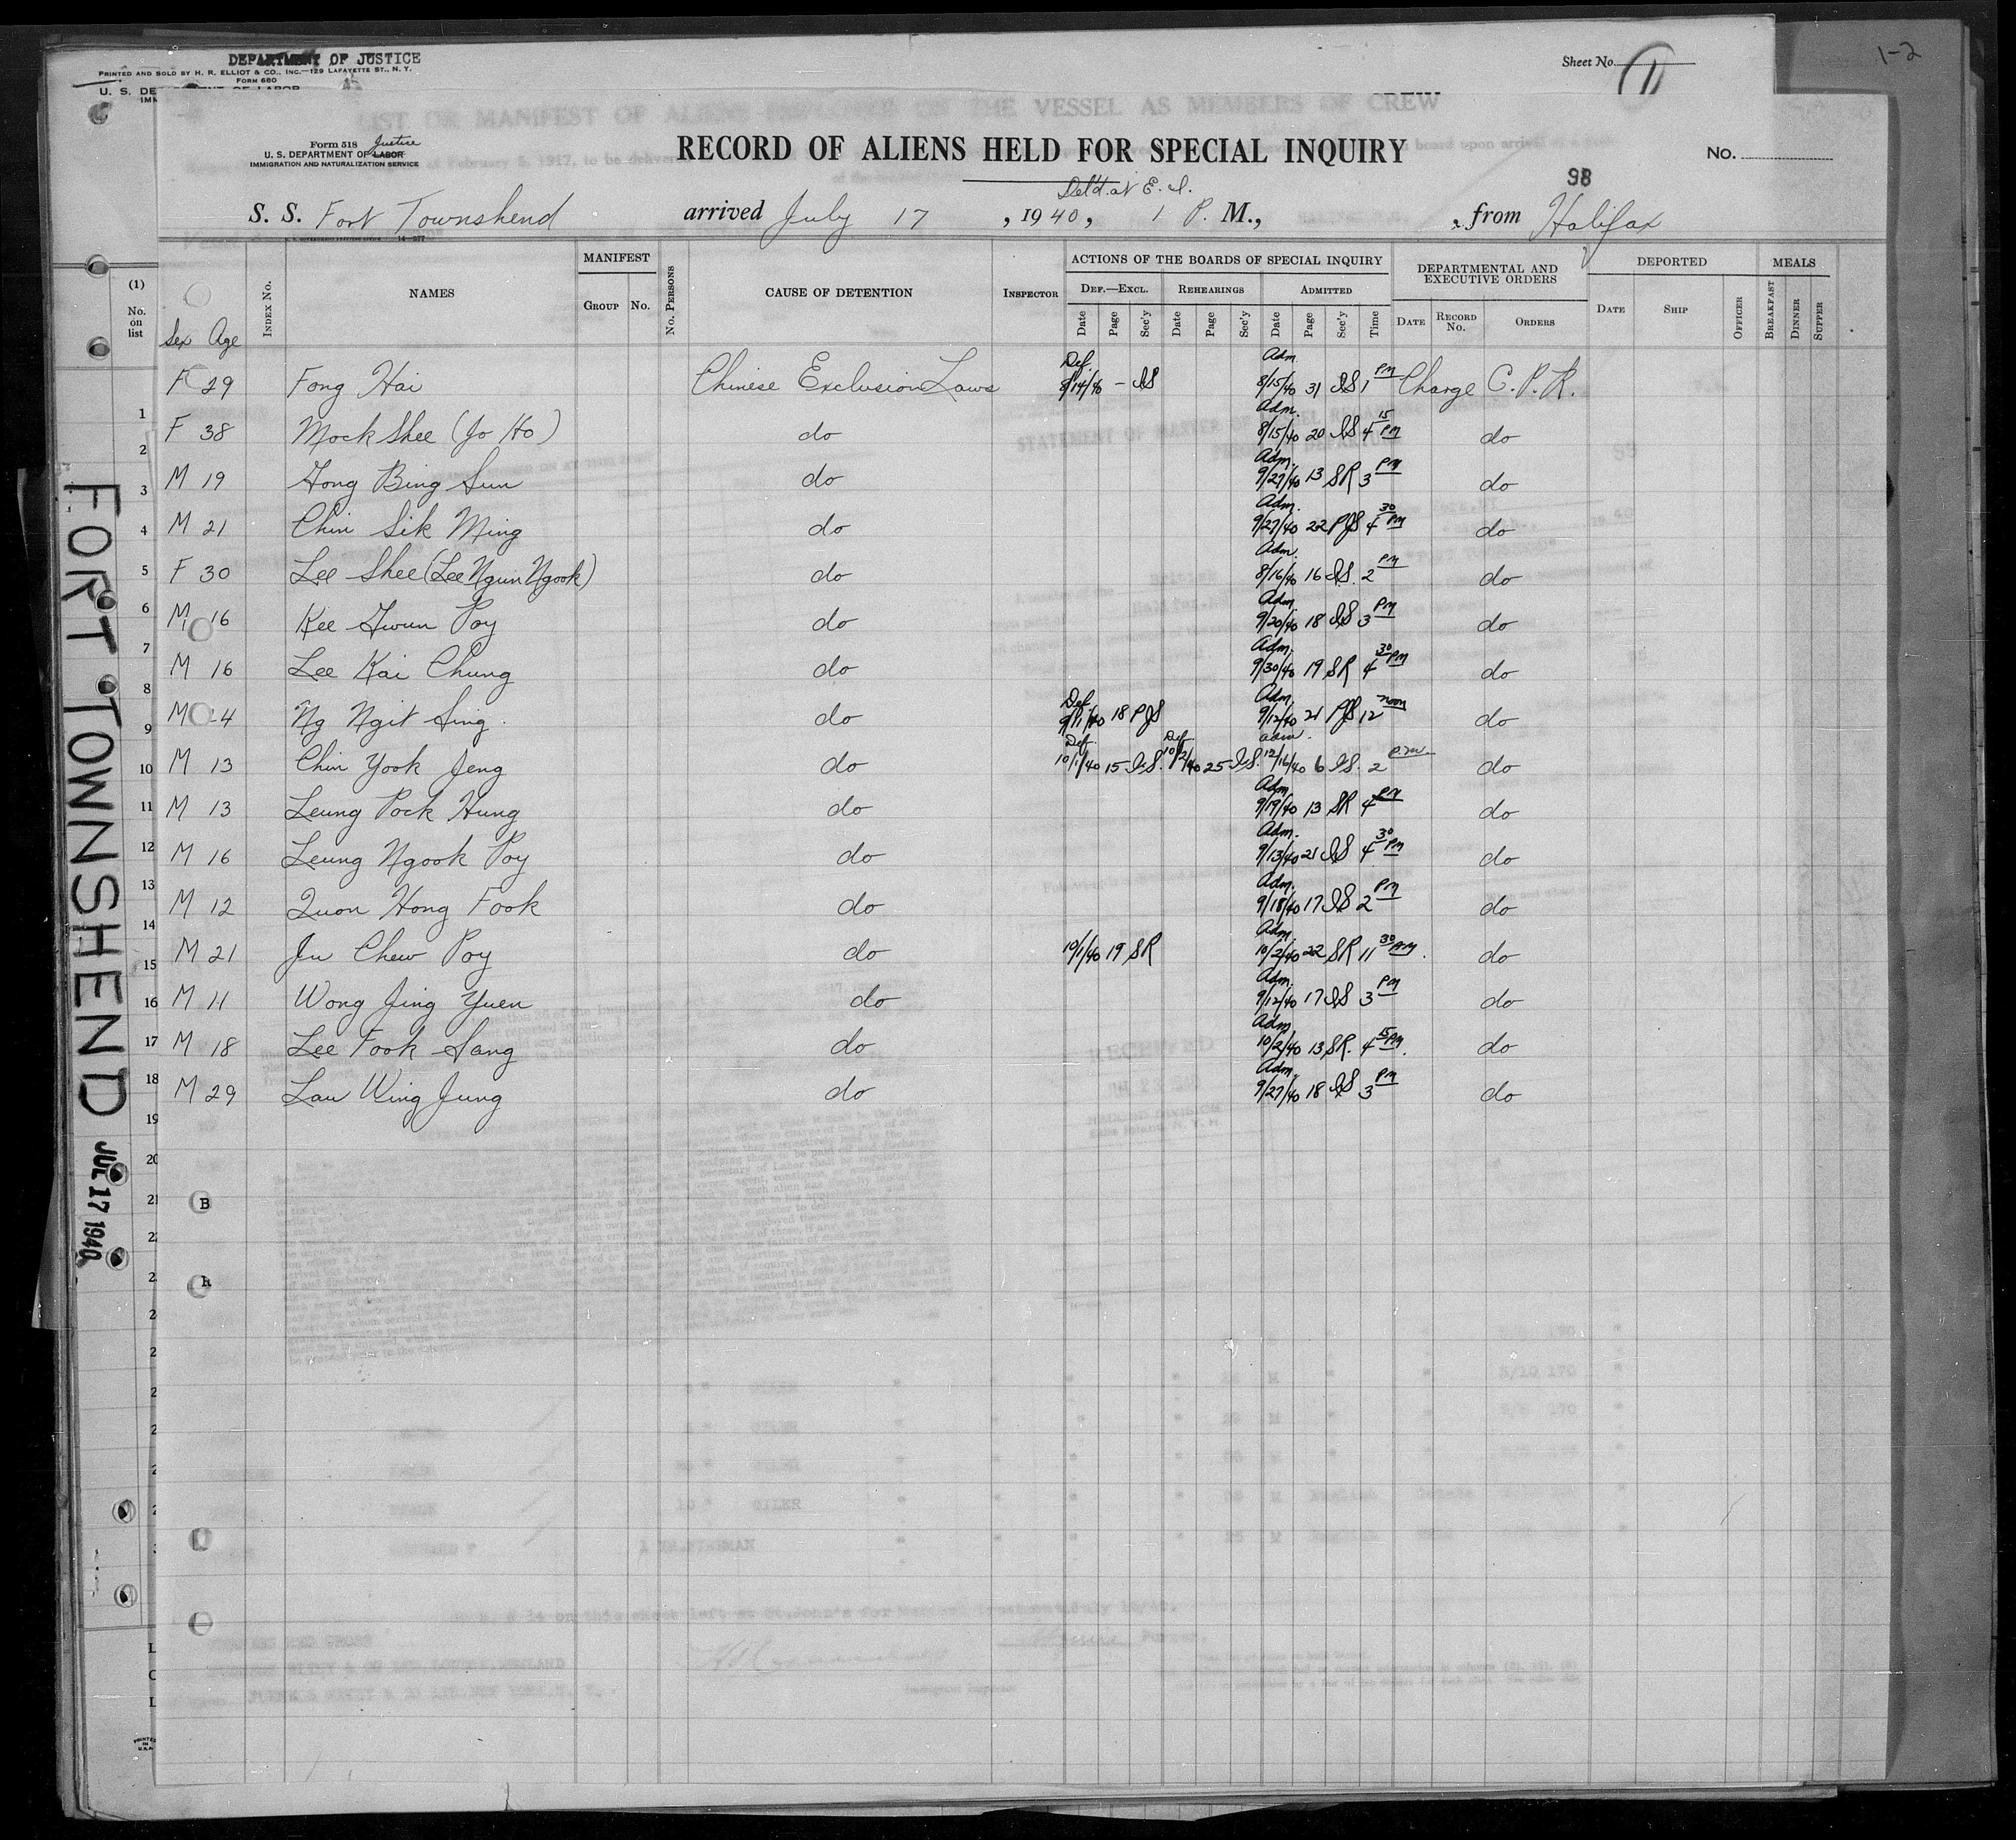 DEPARTMENT OF JUSTICE
PRINTED AND SOLD BY H. R. ELLIOT & CO., INC.—129 LAFAYETTE ST., N. Y.
FORM 680
Sheet No. 1
1-2
Form 518
U. S. DEPARTMENT OF LABOR Justice
IMMIGRATION AND NATURALIZATION SERVICE
RECORD OF ALIENS HELD FOR SPECIAL INQUIRY
No.
98
Del'd. at E. I.
S. S. Fort Townshend arrived July 17, 1940, 1 P. M., from Halifax
(1) No. on list
Sex Age
INDEX No.
NAMES
MANIFEST
GROUP No.
No. PERSONS
CAUSE OF DETENTION
INSPECTOR
ACTIONS OF THE BOARDS OF SPECIAL INQUIRY
DEF.—EXCL. REHEARINGS ADMITTED
Date Page Sec'y Date Page Sec'y Date Page Sec'y Time
DEPARTMENTAL AND EXECUTIVE ORDERS
DATE RECORD No. ORDERS
DEPORTED
DATE SHIP OFFICER
MEALS
BREAKFAST DINNER SUPPER
F 29 Fong Hai Chinese Exclusion Laws Def. 8/14/40 – IS Adm. 8/15/40 31 IS 1 PM Charge C. P. R.
F 38 Mock Shee (Jo Ho) do Adm. 8/15/40 20 IS 4 15 PM do
M 19 Fong Bing Sun do Adm. 9/27/40 13 SR 3 PM do
M 21 Chin Sik Ming do Adm. 9/27/40 22 PJS 4 30 PM do
F 30 Lee Shee (Lee Ngun Ngook) do Adm. 8/16/40 16 IS. 2 PM do
M 16 Kee Gwun Poy do Adm. 9/20/40 18 IS 3 PM do
M 16 Lee Kai Chung do Adm. 9/30/40 19 SR 4 30 PM do
M Ng Ngit Sing do Def 18 PJS Adm. 9/12/40 21 PJS 12 noon do
M 13 Chin Yook Jeng do Def. 10/1/40 15 IS. Def 10/2/40 25 IS. adm. 12/16/40 6 IS. 2 P.M. do
M 13 Leung Pock Hung do Adm. 9/19/40 13 SR 4 PM do
M 16 Leung Ngook Poy do Adm. 9/13/40 21 IS 4 30 PM do
M 12 Quon Hong Fook do Adm. 9/18/40 17 IS 2 PM do
M 21 Ju Chew Poy do 10/1/40 19 SR Adm. 10/2/40 22 SR 11 30 AM. do
M 11 Wong Jing Yuen do Adm. 9/12/40 17 IS 3 PM do
M 18 Lee Fook Sang do Adm. 10/2/40 13 SR. 4 15 PM. do
M 29 Lau Wing Jung do Adm. 9/27/40 18 IS 3 PM do
1
2
3
4
5
6
7
8
9
10
11
12
13
14
15
16
17
18
19
20
21
FORT TOWNSHEND
JUL 17 1940